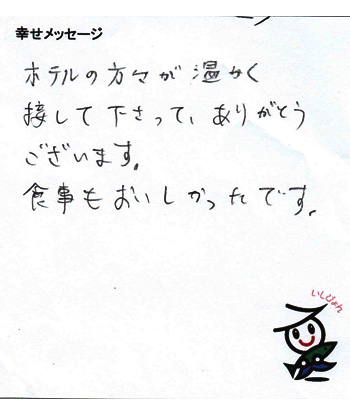 幸せメッセージ
ホテルの方々が温かく
接して下さって、ありがとう
ございます。
食事もおいしかったです。
いしぴょん